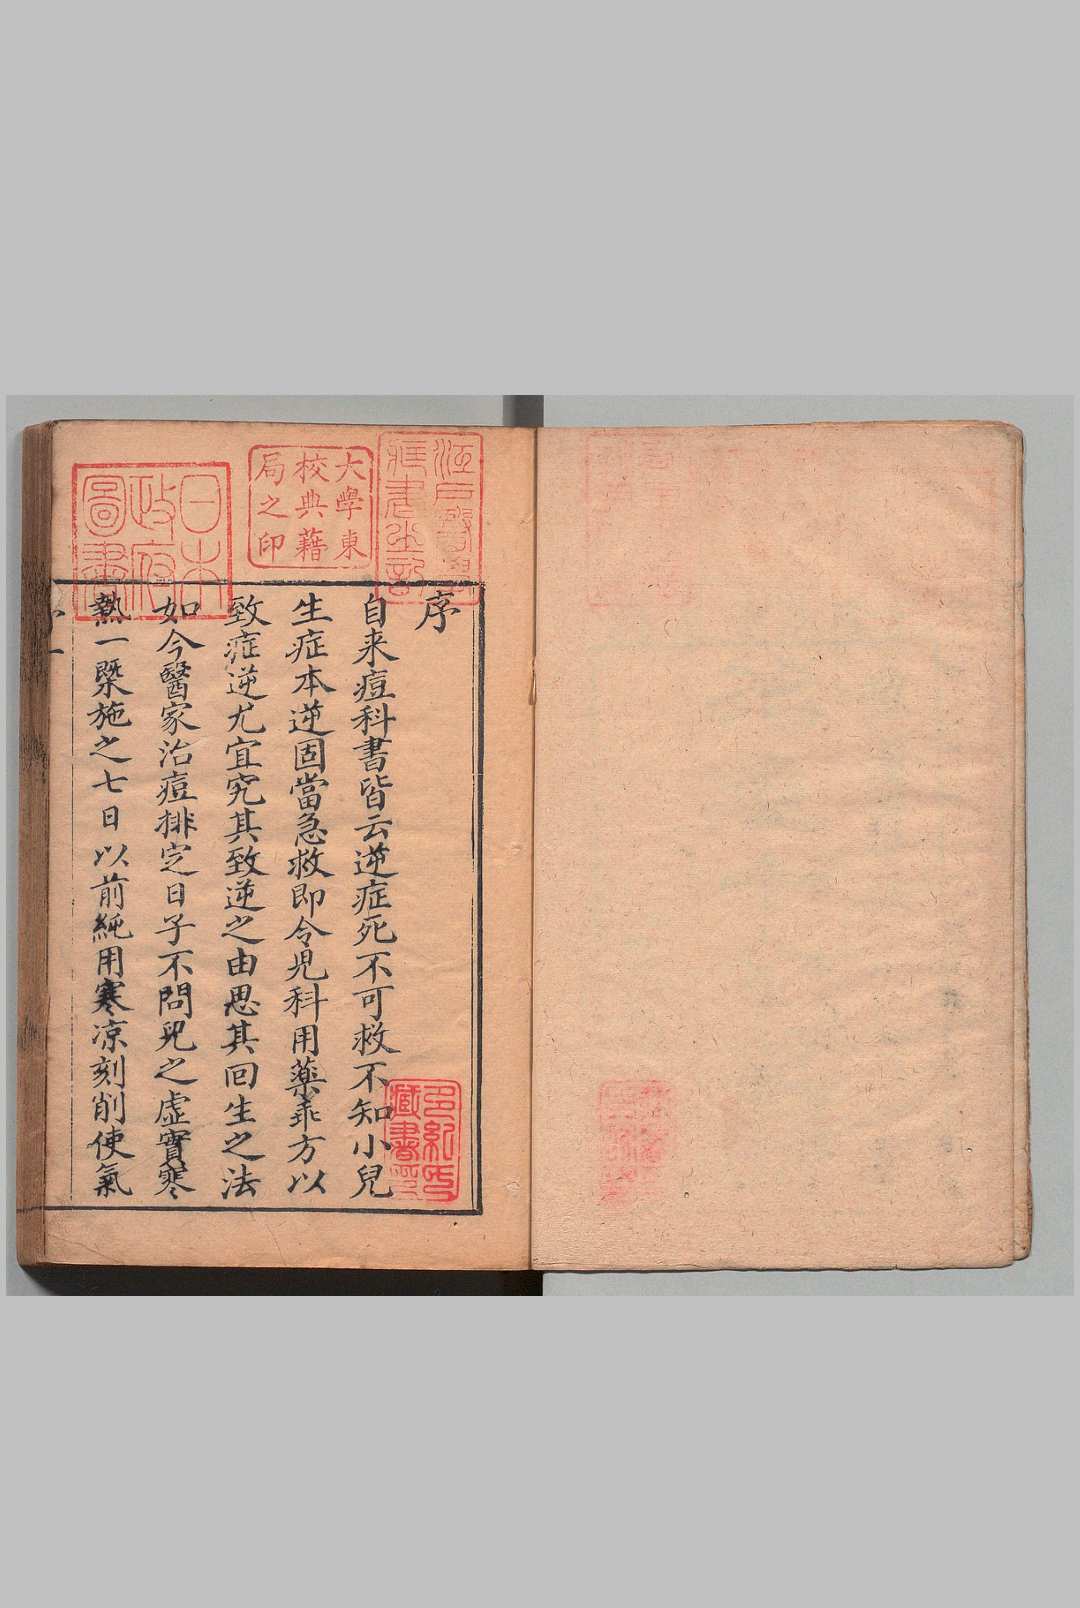 序
自来痘科書皆云逆症死不可救不知小兒
生症本逆固當急救即令児科用藥乖方以
致症逆尤宜究其致逆之由思其回生之法
如今醫家治痘排定日子不問兒之虛實寒
熱一槩施之七日以前純用寒凉刻削使氣
大學東
校典藉
局之印
日本
政府
圖書
藏書